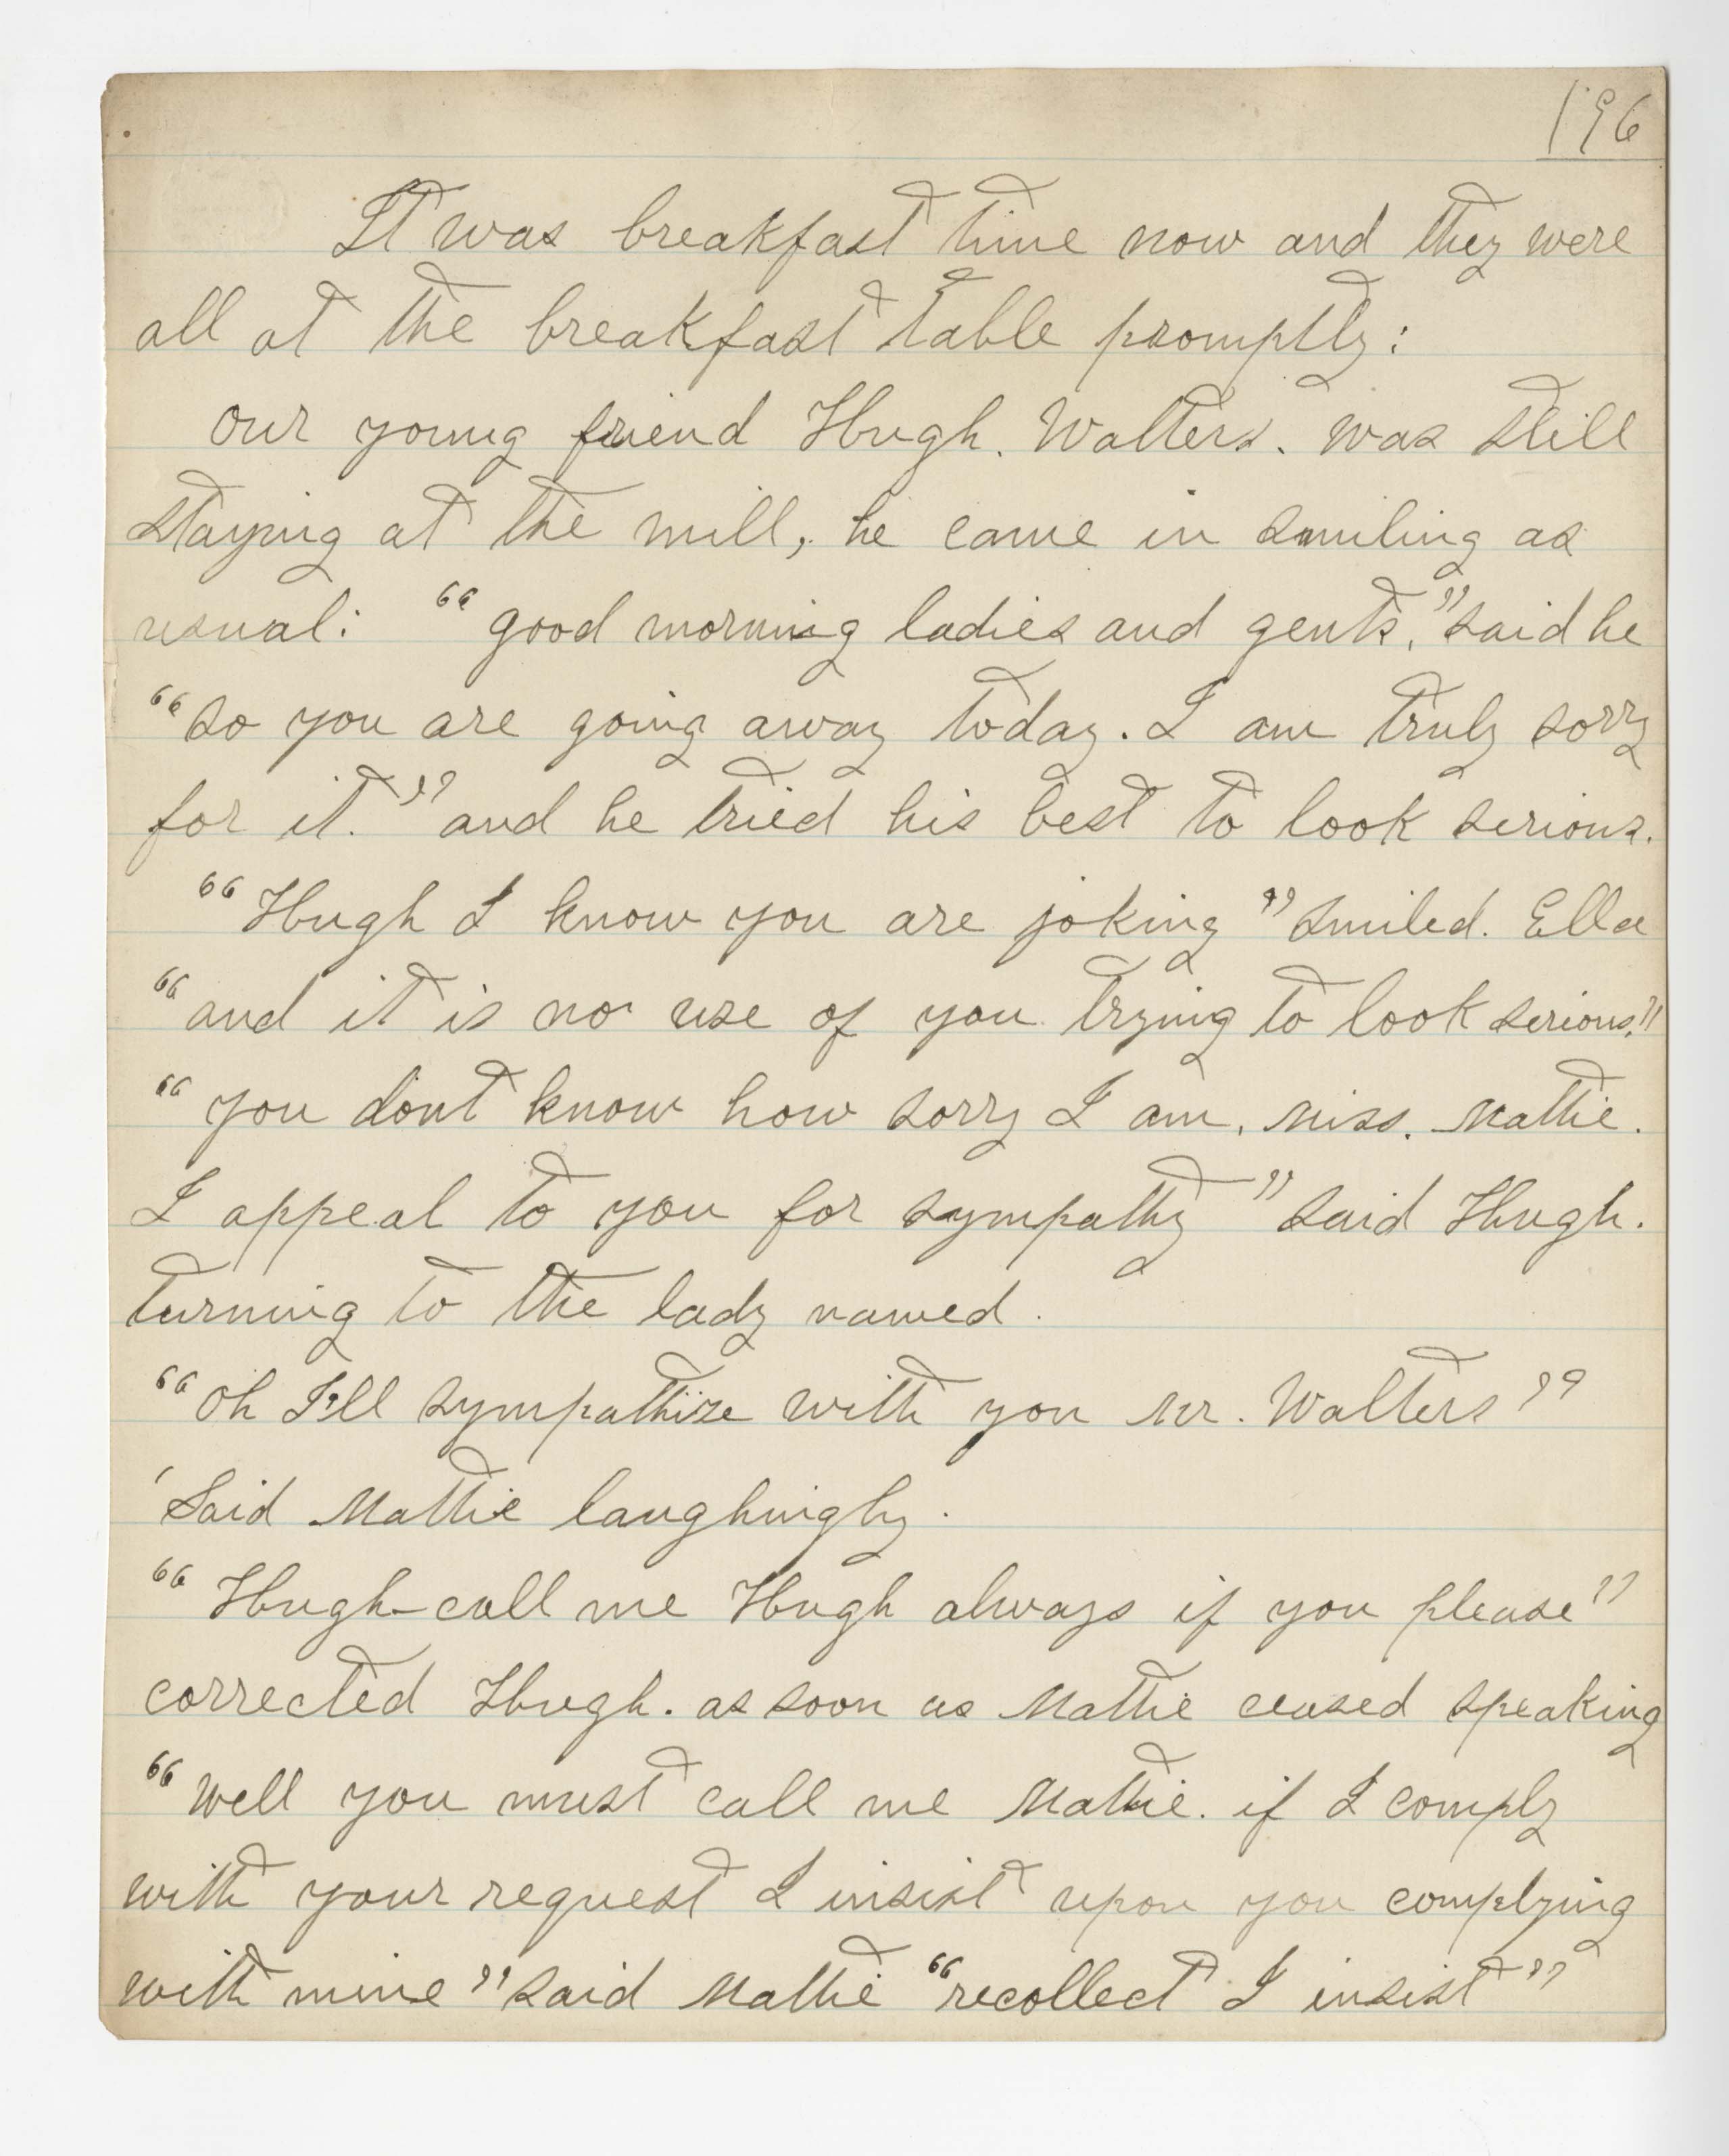 196
It was breakfast time now and they were
all at the breakfast table promptly:
our young friend Hugh. Walters. was still
staying at the mill, he came in smiling as
usual: "good morning ladies and gents," said he
"so you are going away today. I am truly sorry
for it." and he tried his best to look serious.
"Hugh I know you are joking" smiled. Ella
"and it is no use of you trying to look serious."
"you dont know how sorry I am, Miss. Mattie.
I appeal to you for sympathy" said Hugh.
turning to the lady named.
"Oh I'll sympathize with you Mr. Walters"
'Said Mattie laughingly.
"Hugh-call me Hugh always if you please"
corrected Hugh. as soon as Mattie ceased speaking
"Well you must call me Mattie. if I comply
with your request I insist upon you complying
with mine" said Mattie "recollect I insist"